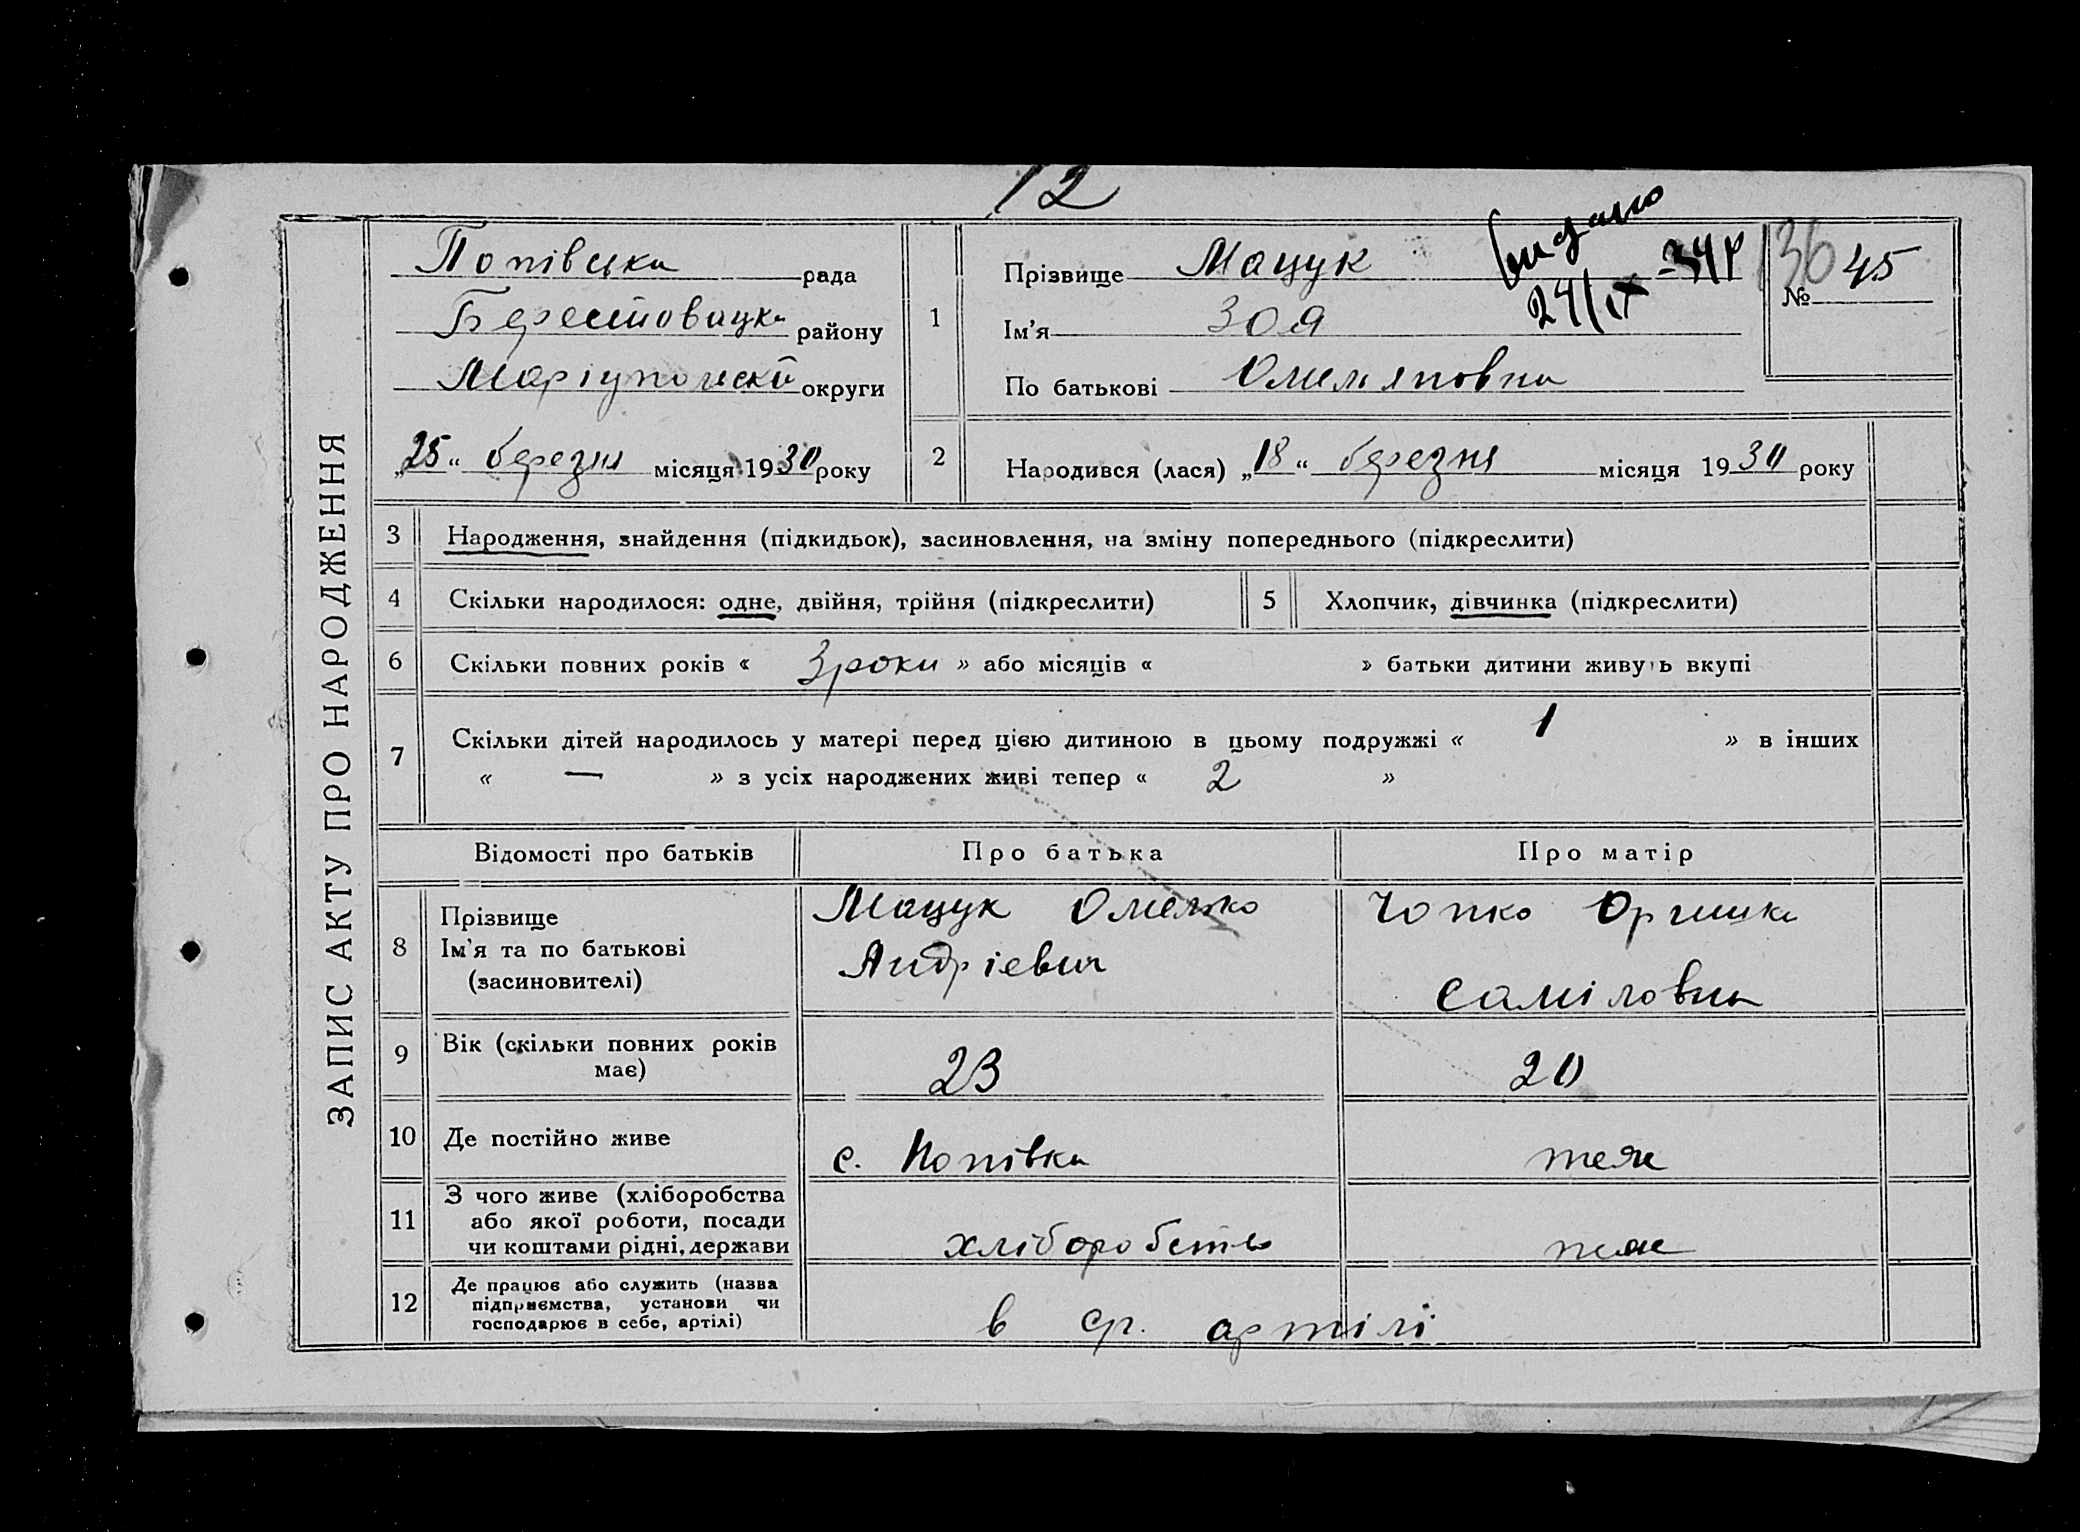 12
ЗАПИС АКТУ ПРО НАРОДЖЕННЯ
Попівська рада
Берестовацка району
Маріупольскої округи
„25“ березня місяця 1930 року
1
Прізвище Мацук
Ім’я Зоя
По батькові Омеляновна
видано
24/IX -34р
136
№ 45
2
Народився (лася) „18“ березня місяця 1930 року
3 Народження, знайдення (підкидьок), засиновлення, на зміну попереднього (підкреслити)
4 Скільки народилося: одне, двійня, трійня (підкреслити) 5 Хлопчик, дівчинка (підкреслити)
6 Скільки повних років « 3 роки » або місяців « » батьки дитини живуть вкупі
7 Скільки дітей народилось у матері перед цією дитиною в цьому подружжі « 1 » в інших
« — » з усіх народжених живі тепер « 2 »
Відомості про батьків Про батька Про матір
8 Прізвище
Ім’я та по батькові
(засиновителі)
Мацук Омелько
Андрієвич
Чопко Оришка
Саміловна
9 Вік (скільки повних років
має)
23
20
10 Де постійно живе с. Попівка теж
11 З чого живе (хліборобства
або якої роботи, посади
чи коштами рідні, держави
хліборобство теж
12 Де працює або служить (назва
підприємства, установи чи
господарює в себе, артілі)
в ср. артілі